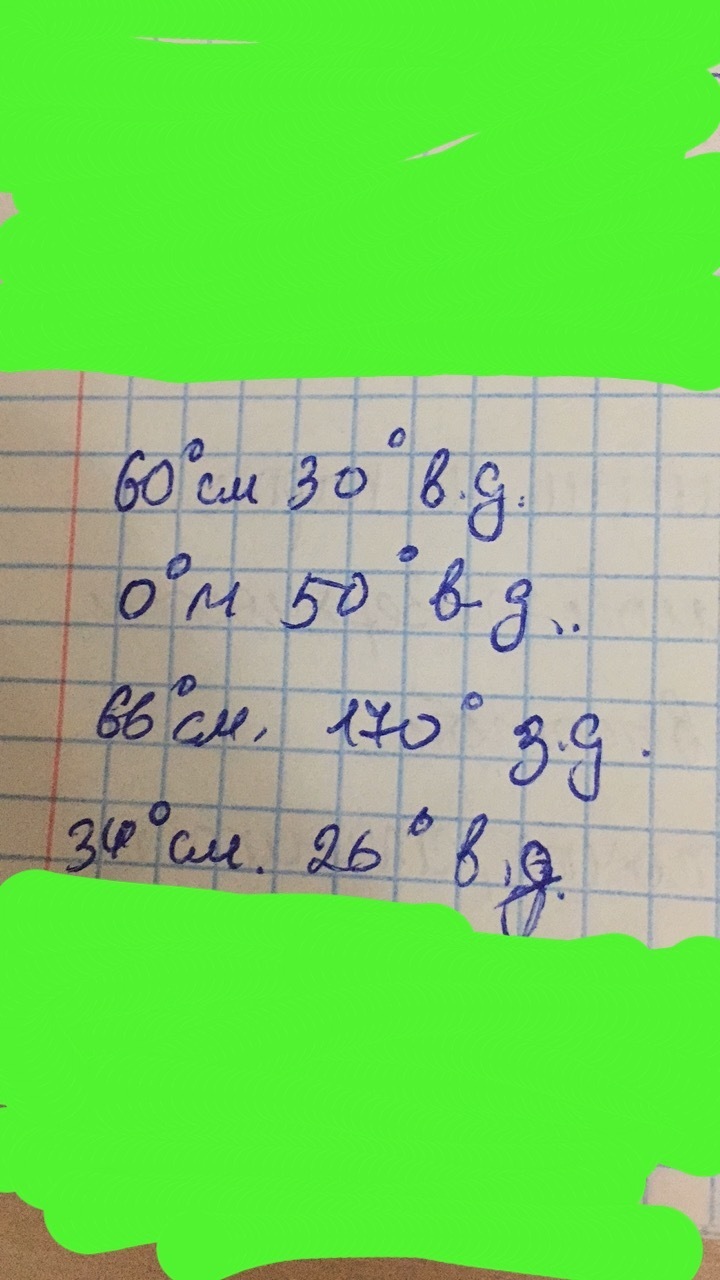 60°см 30° в.д.
0°м 50° в д..
66°см. 170° з.д.
34°см. 26° в.д.